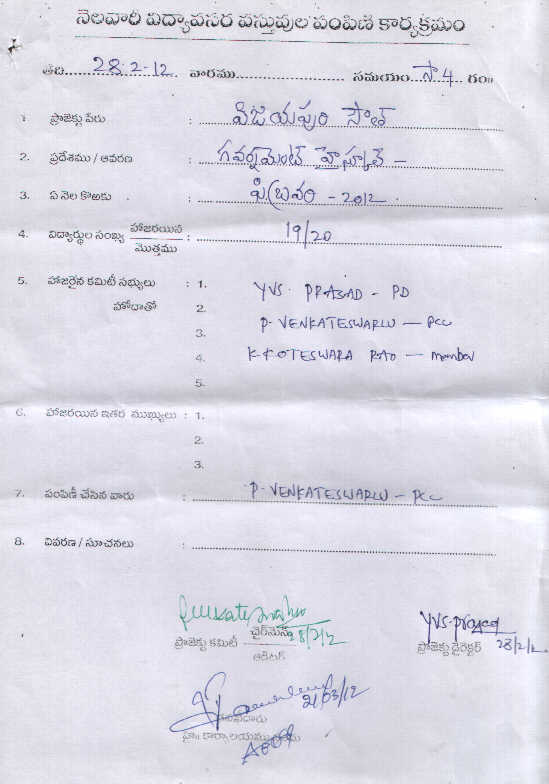 నెలవారీ విద్యావసర వస్తువుల పంపిణీ కార్యక్రమం
తేది 28-2-12. వారము సమయం సా 4 గం॥
1. ప్రాజెక్టు పేరు : విజయపురం సౌత్
2. ప్రదేశము / ఆవరణ : గవర్నమెంట్ హైస్కూల్ -
3. ఏ నెల కొఱకు : ఫిబ్రవరి - 2012
4. విద్యార్థుల సంఖ్య హాజరయిన : 19/20
మొత్తము
5. హాజరైన కమిటీ సభ్యులు : 1. YVS. PRASAD - PD
హోదాతో 2. P. VENKATESWARLU - PCC
3. K. KOTESWARA RAO - member
4.
5.
6. హాజరయిన ఇతర ముఖ్యులు : 1.
2.
3.
7. పంపిణీ చేసిన వారు : P. VENKATESWARLU - PCC
8. వివరణ / సూచనలు :
ప్రాజెక్టు కమిటీ ఛైర్మెన్ 28/2/12
ఆడిటర్
YVS. Prasad
ప్రాజెక్టు డైరెక్టర్ 28/2/12
21/03/12